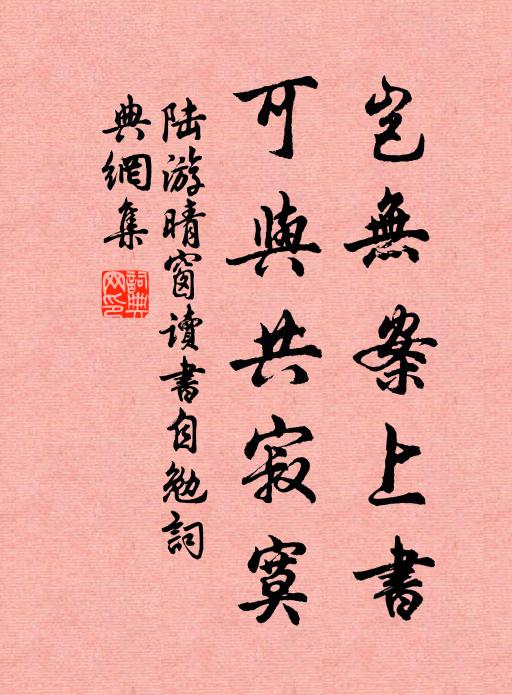 豈無案上書
可與共寂寞
陸游晴窗讀書自勉詞
典網集
詞典網印